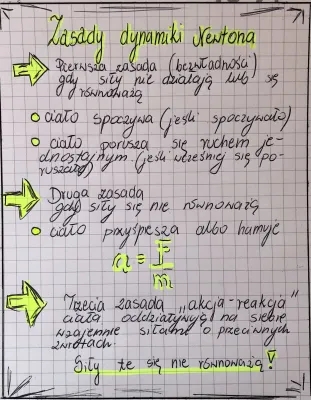 Zasady dynamiki Newtona
Pierwsza zasada (bezwładności)
gdy siły nie działają lub się
równoważą
ciało spoczywa (jeśli spoczywało)
ciało porusza się ruchem je-
dnostajnym (jeśli wcześniej się po-
ruszało)
Druga zasada
gdy siły się nie równoważą
ciało przyśpiesza albo hamuje
a = F/m
Trzecia zasada „akcja-reakcja"
ciała oddziaływują na siebie
wzajemnie siłami o przeciwnych
zwrotach.
Siły te się nie równoważą!